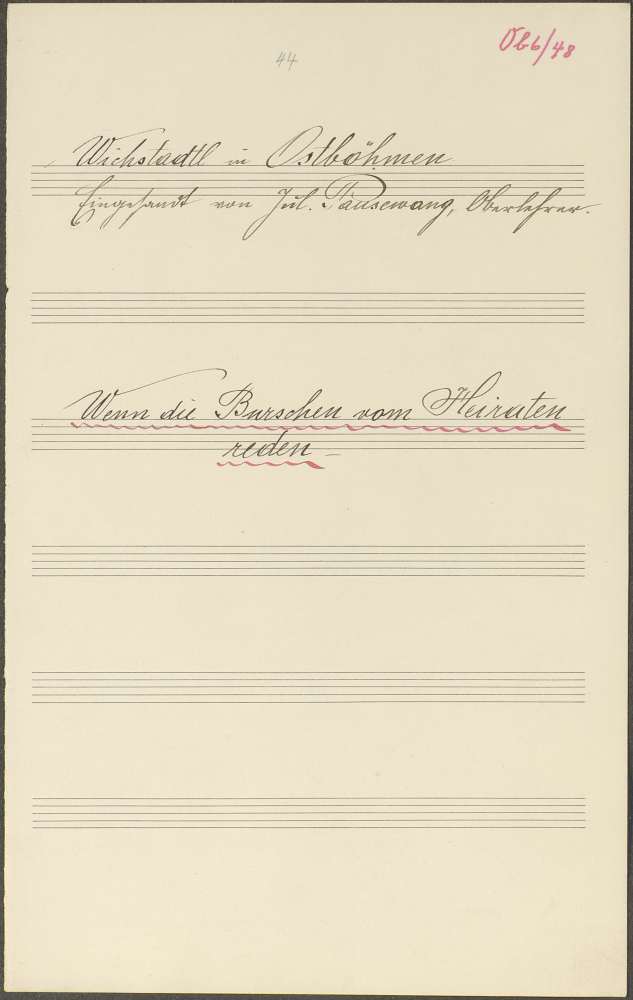 44
Wichstadtl in Ostböhmen
Eingesandt von Jul. Pausewang, Oberlehrer.
Wenn die Burschen vom Heiraten
reden –